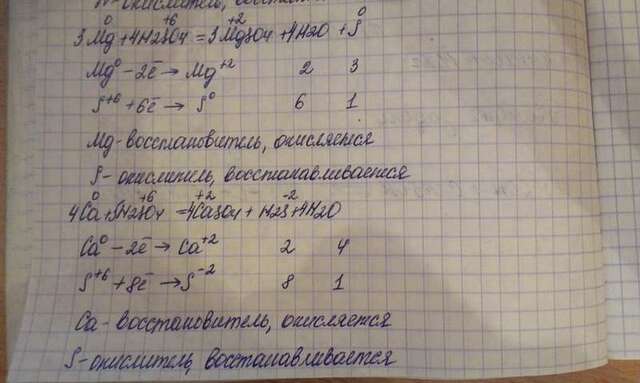 окислитель,
0 +6 +2 0
3Mg+4H2SO4=3MgSO4+4H2O+S
Mg⁰-2ē→Mg⁺² 2 3
S⁺⁶+6ē→S⁰ 6 1
Mg-восстановитель, окисляется
S-окислитель, восстанавливается
0 +6 +2 -2
4Ca+5H2SO4=4CaSO4+H2S+4H2O
Ca⁰-2ē→Ca⁺² 2 4
S⁺⁶+8ē→S⁻² 8 1
Ca-восстановитель, окисляется
S-окислитель, восстанавливается